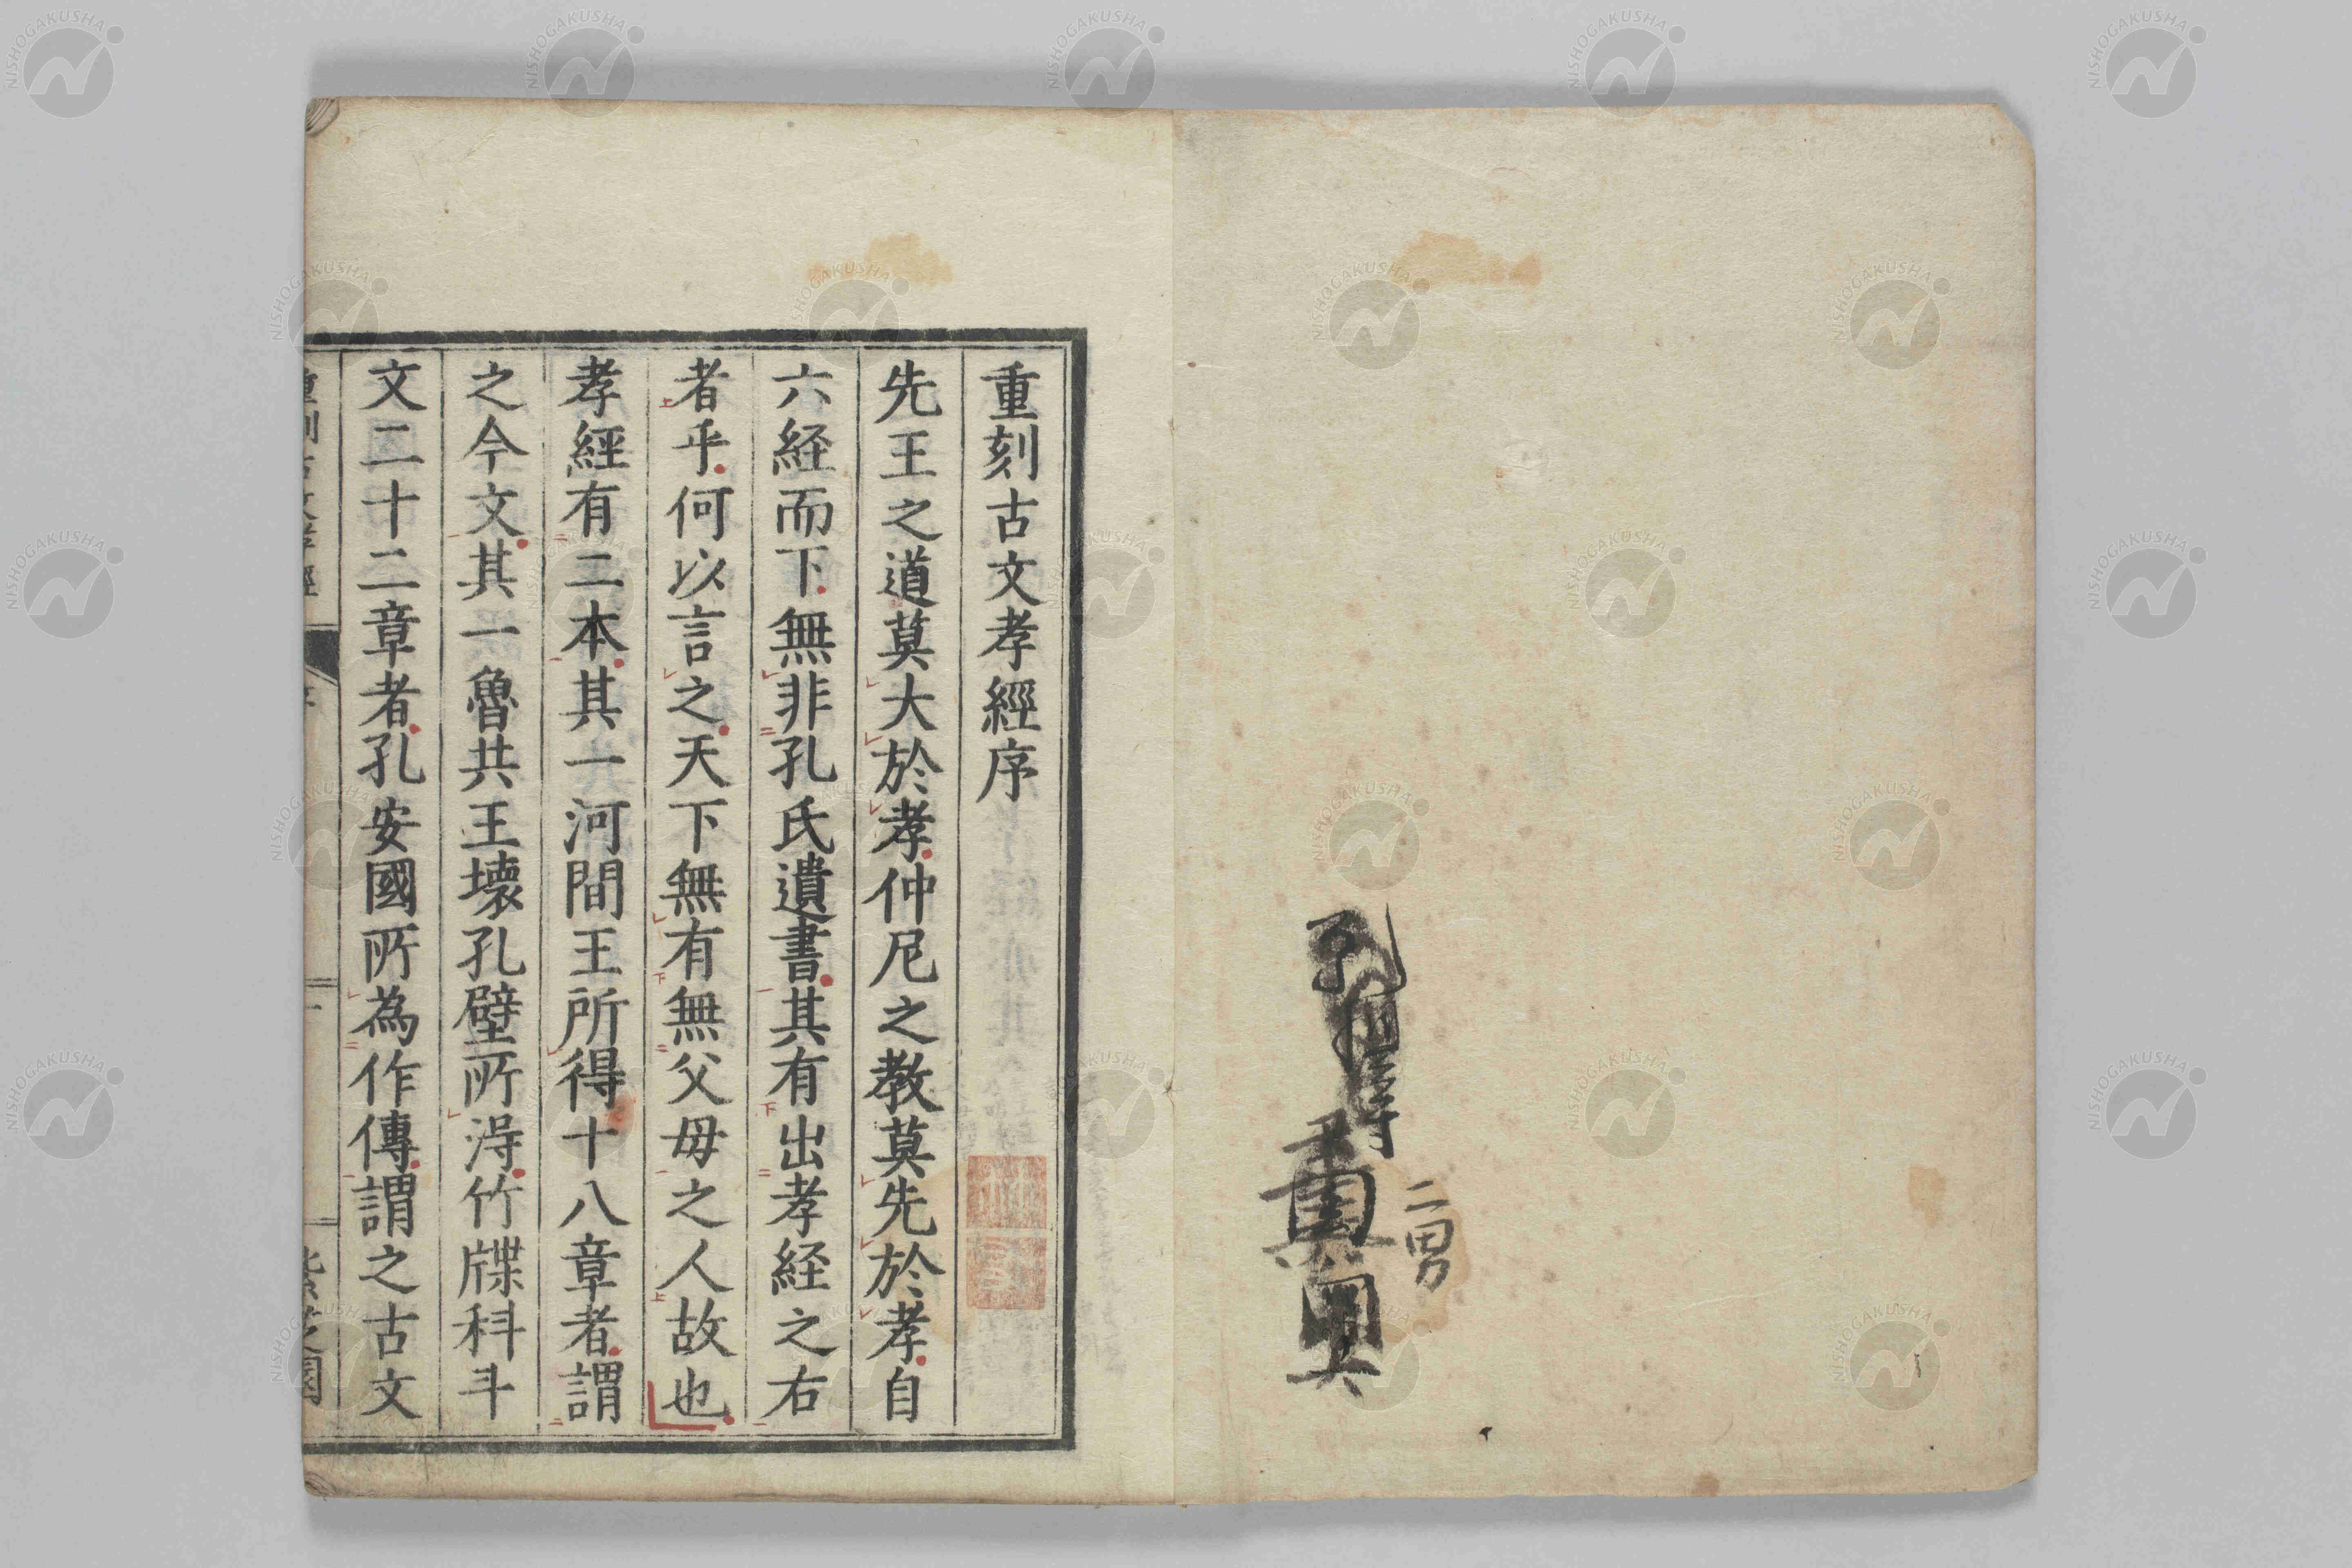 二男
重刻古文孝經序
先王之道莫大於孝仲尼之教莫先於孝自
六経而下無非孔氏遺書其有出孝経之右
者乎何以言之天下無有無父母之人故也
孝經有二本其一河間王所得十八章者謂
之今文其一魯共王壊孔壁所淂竹牒科斗
文二十二章者孔安國所為作傳謂之古文
重刻古文孝經
紫芝園
NISHOGAKUSHA